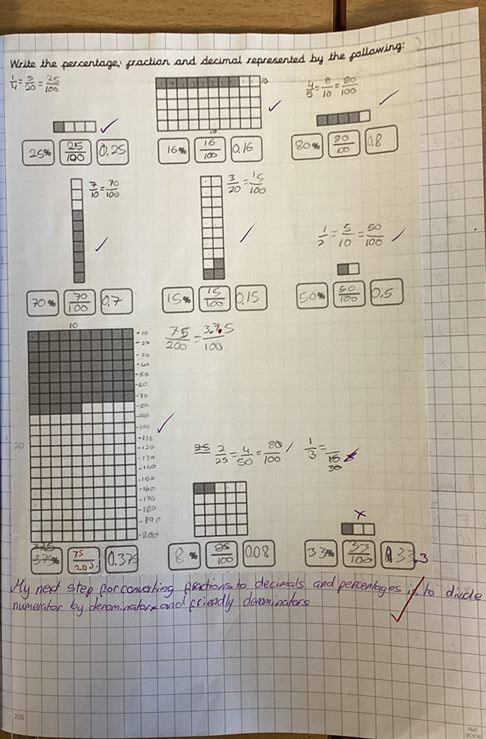 Write the percentage, fraction and decimal represented by the following:
1/4 = 5/20 = 25/100
10
4/5 = 8/10 = 80/100
10
25% 25/100 0.25
16% 16/100 0.16
80% 80/100 0.8
7/10 = 70/100
3/20 = 15/100
1/2 = 5/10 = 50/100
70% 70/100 0.7
15% 15/100 0.15
50% 50/100 0.5
10
75/200 = 37.5/100
-10
-20
-30
-40
-50
-60
-70
-80
-90
-100
-110
-120
-130
-140
-150
-160
-170
-180
-190
-200
20
2/25 = 4/50 = 80/100
1/3 =
75/200 0.375
8% /100 0.08
33% 33/100 0.33.3
My next step for converting fractions to decimals and percentages is to divide
numerator by denominator and friendly denominators